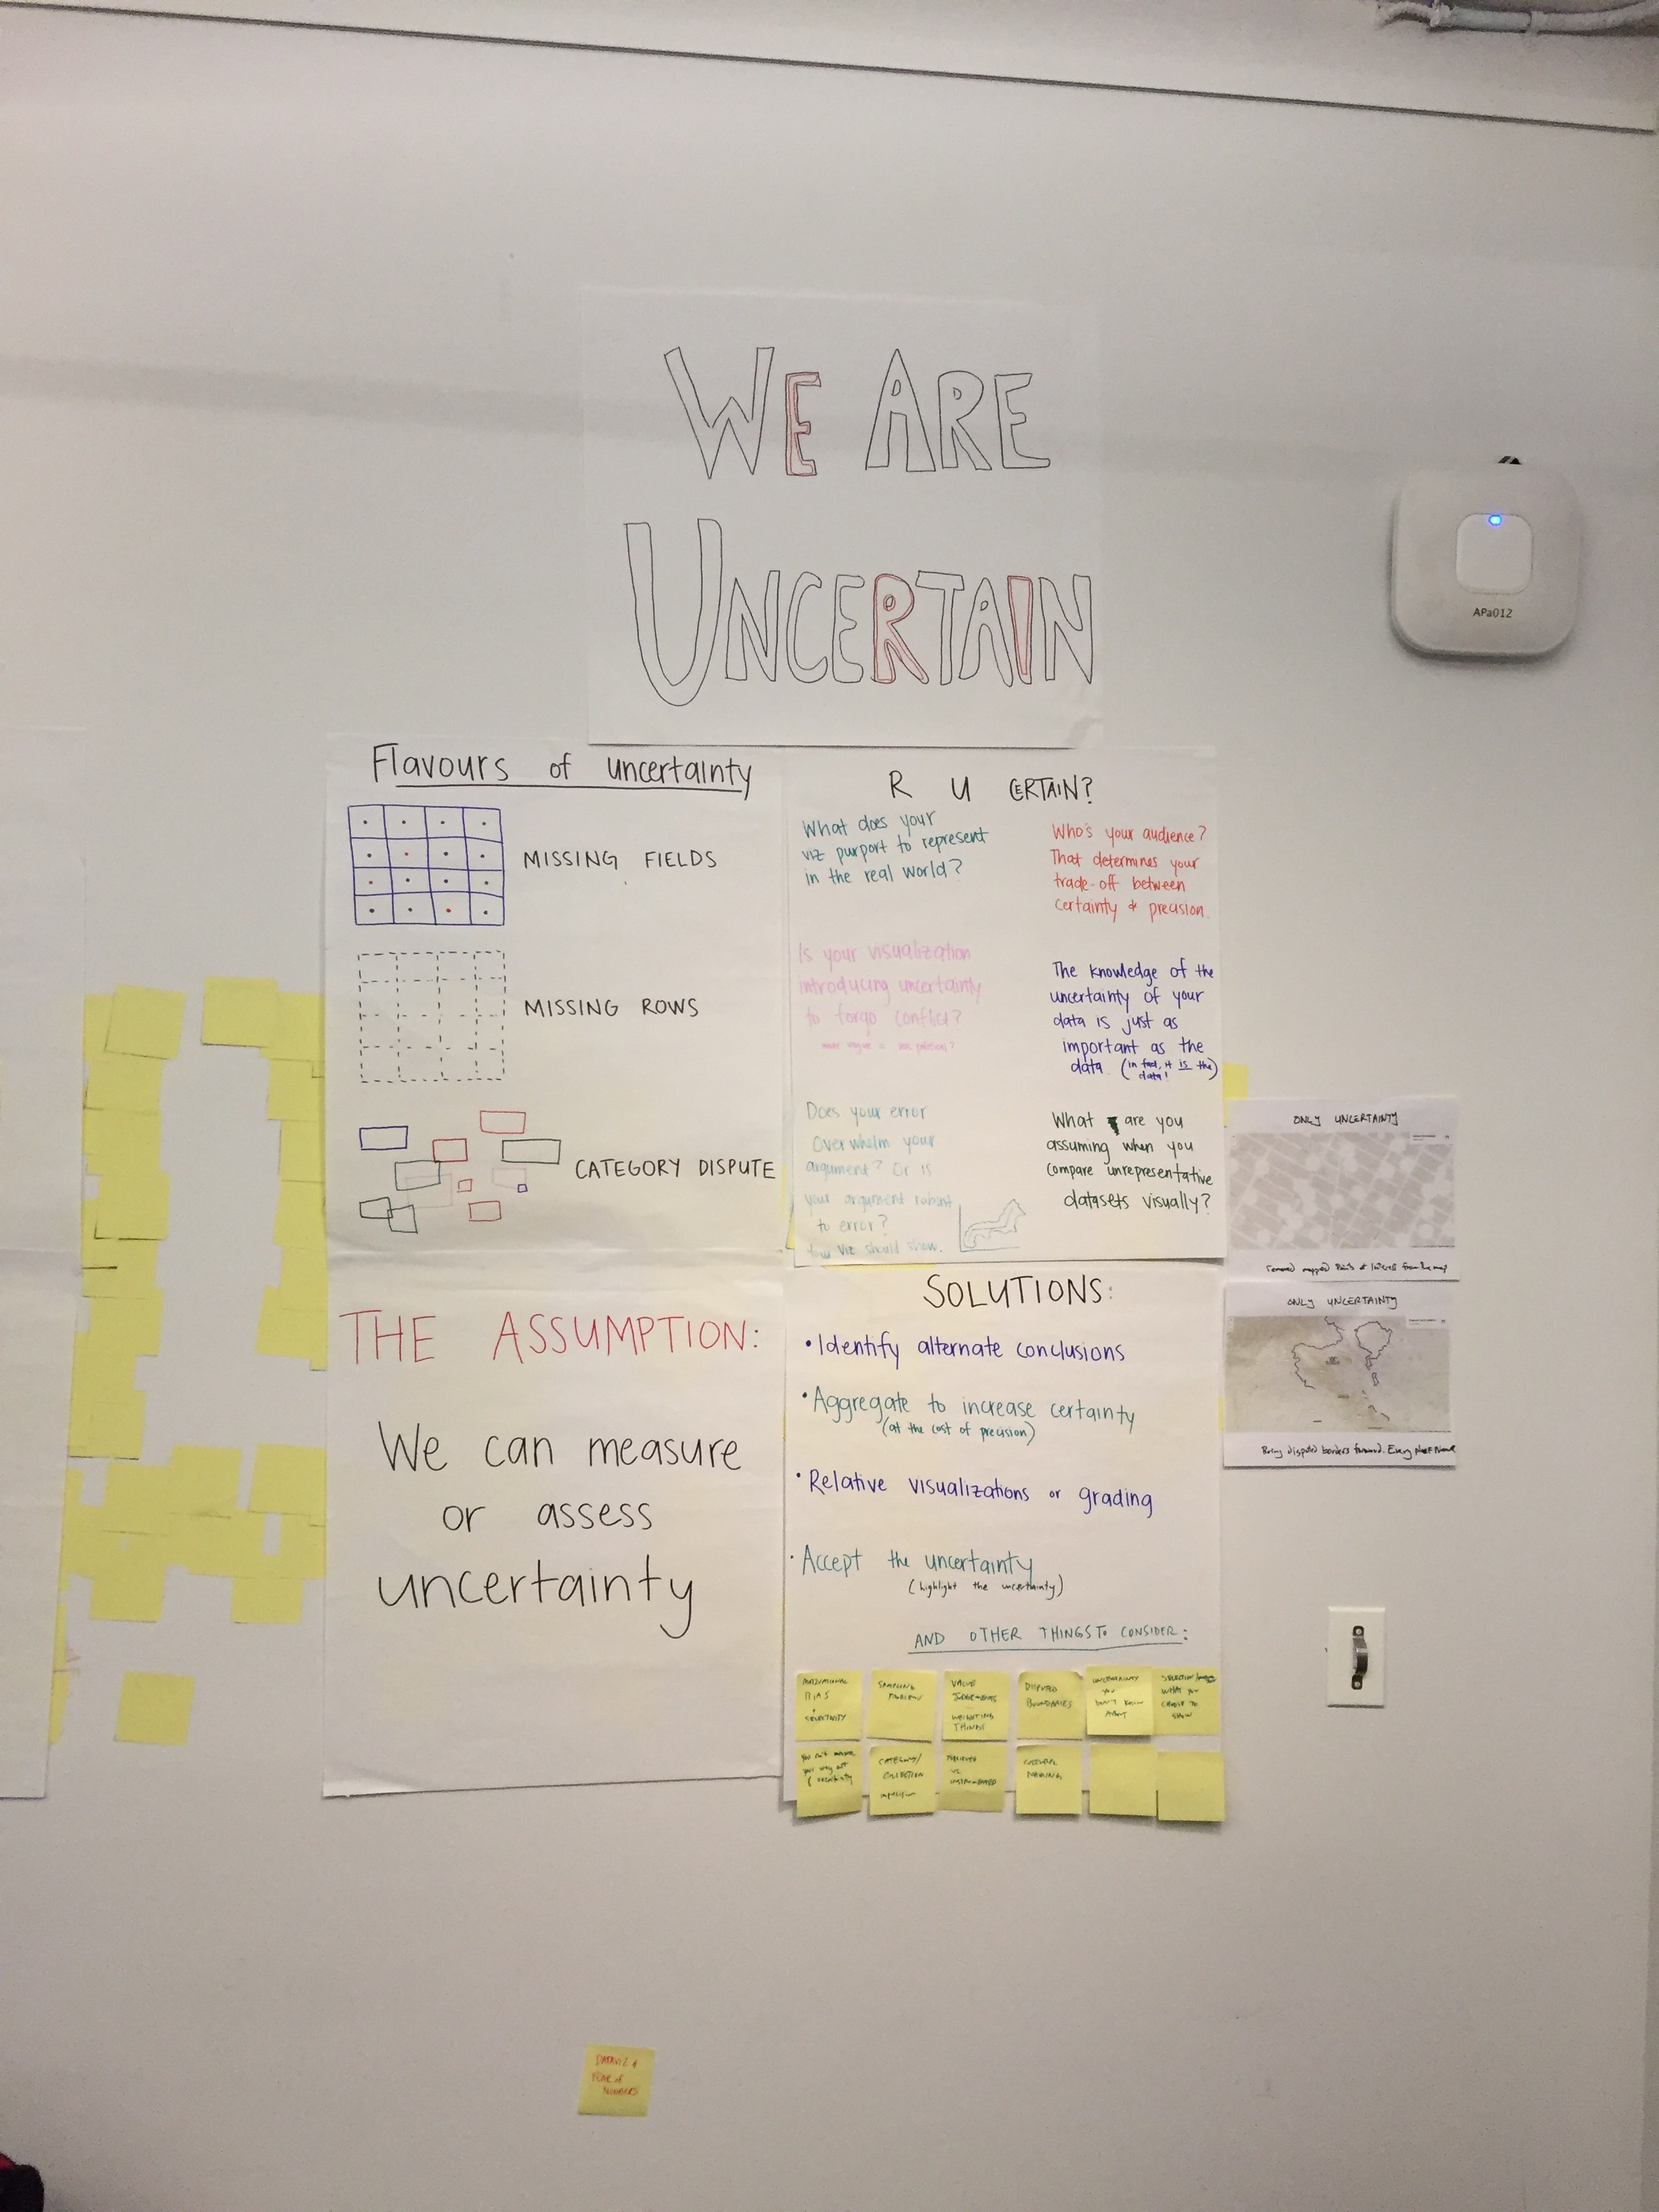 WE ARE
UNCERTAIN
APa012
Flavours of uncertainty
MISSING FIELDS
MISSING ROWS
CATEGORY DISPUTE
R U CERTAIN?
What does your
viz purport to represent
in the real world?
Who's your audience?
That determines your
trade-off between
certainty & precision.
Is your visualization
introducing uncertainty
to forgo conflict?
The knowledge of the
uncertainty of your
data is just as
important as the
data. (in fact, it is the
data!)
Does your error
overwhelm your
argument? Or is
your argument robust
to error?
Your viz should show.
What are you
assuming when you
compare unrepresentative
datasets visually?
ONLY UNCERTAINTY
removed mapped Points of Interest from the map
ONLY UNCERTAINTY
Bring disputed borders forward. Every place name
THE ASSUMPTION:
We can measure
or assess
uncertainty
SOLUTIONS:
• Identify alternate conclusions
• Aggregate to increase certainty
(at the cost of precision)
• Relative visualizations or grading
• Accept the uncertainty
(highlight the uncertainty)
AND OTHER THINGS TO CONSIDER:
MOTIVATIONAL
BIAS
SELECTIVITY
SAMPLING
PROBLEM
VALUE
JUDGEMENTS
WEIGHTING
THINGS
DISPUTED
BOUNDARIES
UNCERTAINTY
YOU
DON'T KNOW
ABOUT
SELECTION
WHAT YOU
CHOOSE TO
SHOW
You can't measure
your way out
of uncertainty
CATEGORY/
COLLECTION
VS
CULTURAL
DATAVIZ &
FEAR of
NUMBERS